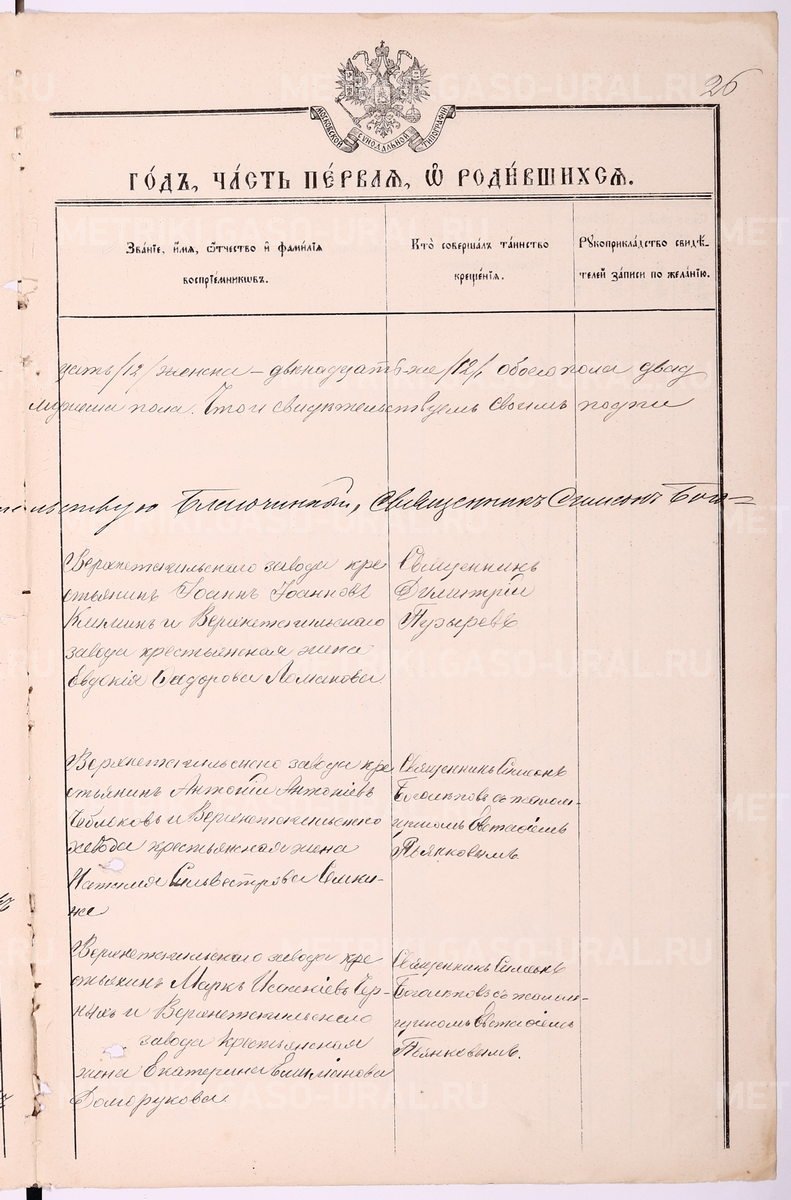 26
МОСКОВСКОЙ СѴНОДАЛЬНОЙ ТИПОГРАФІИ
ГО́ДЪ, ЧА́СТЬ ПЕ́РВАѦ, Ѡ҆ РОДИ́ВШИХСѦ.
Зва́нїе, и҆́мѧ, ѻ҆́тчество и҆ фами́лїѧ
воспрїе́мникѡвъ.
Кто̀ соверша́лъ та́инство
креще́нїѧ.
Рꙋкоприкла́дство свидѣ́-
телей за́писи по жела́нїю.
цать /12/ женска – двенадцать же /12/, обоего пола двад
мужеска пола. Что и свидѣтельствуемъ своимъ подпи
Благочинный, Священникъ Симеонъ Бого=
Верхнетагильскаго завода кре
стьянинъ Іоаннъ Іоанновъ
и Верхнетагильскаго
завода крестьянская жена
Евдокія Сидорова
Священникъ
Димитрій
Пузыревъ
Верхнетагильскаго завода кре
стьянинъ Антоній Антоніевъ
и Верхнетагильскаго
завода крестьянская жена
Наталія Сильвестрова
Священникъ Симеонъ
Боголѣповъ съ псалом-
щикомъ Евстафіемъ
Пьянковымъ.
Верхнетагильскаго завода кре
стьянинъ Маркъ Исаакіевъ Чер-
ныхъ и Верхнетагильскаго
завода крестьянская
жена Екатерина
Долгорукова
Священникъ Симеонъ
Боголѣповъ съ псалом-
щикомъ Евстафіемъ
Пьянковымъ.
METRIKI.GASO-URAL.RU